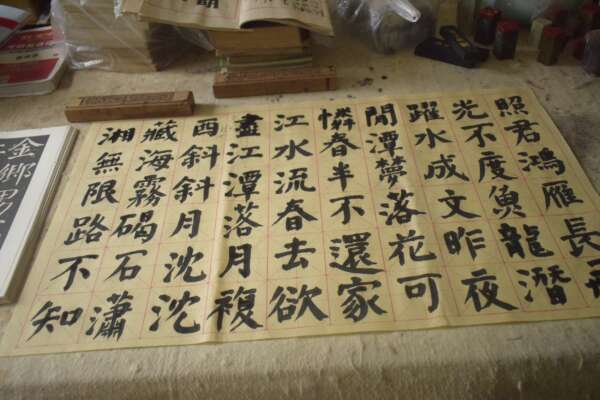 照君鴻雁長飛
光不度魚龍潛
躍水成文昨夜
閒潭夢落花可
憐春半不還家
江水流春去欲
盡江潭落月複
酉斜斜月沈沈
藏海霧碣石瀟
湘無限路不知
金鄉